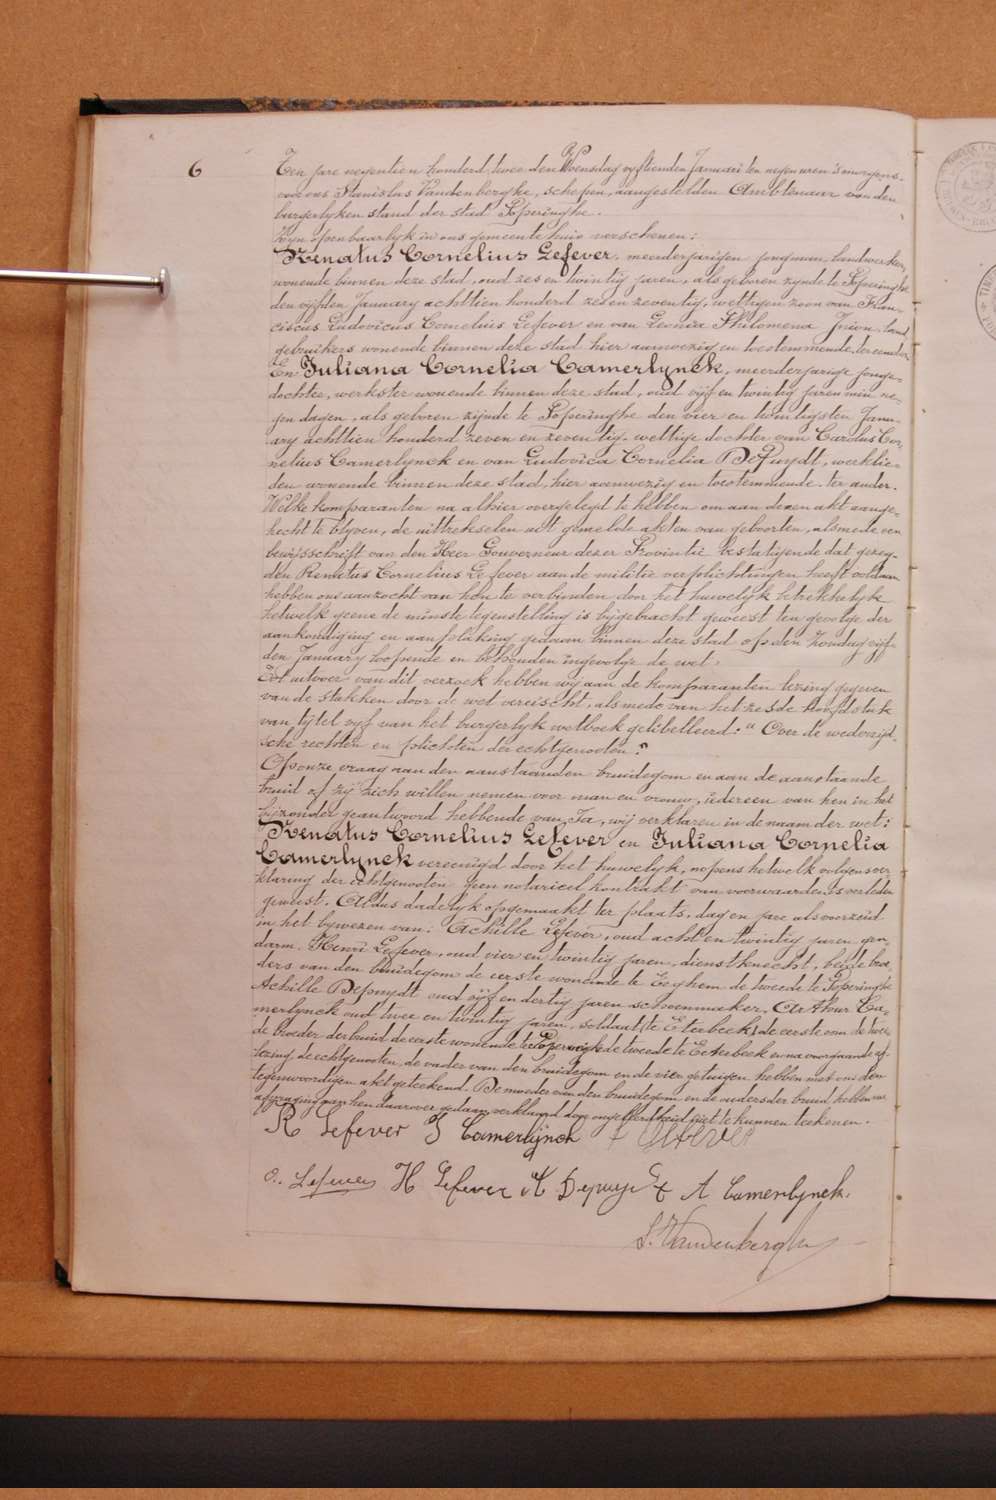 6
Ten jare negentien honderd twee den Woensdag vyftienden Januari ten negen uren 's morgens
voor ons Stanislas Vandenberghe, schepen, aangestelden Ambtenaar van den
burgerlyken stand der stad Poperinghe.
Zyn openbaarlyk in ons gemeentehuis verschenen:
Renatus Cornelius Lefever, meerderjarigen jongman, landwerker,
wonende binnen deze stad, oud zes en twintig jaren, als geboren zynde te Poperinghe
den vyfden January achttien honderd zes en zeventig, wettigen zoon van Fran-
ciscus Ludovicus Cornelius Lefever en van Leonia Philomena land
gebruikers wonende binnen deze stad hier aanwezig en toestemmende, ter eender
En Juliana Cornelia Camerlynck, meerderjarige jonge-
dochter, werkster wonende binnen deze stad, oud vijf en twintig jaren min ne-
gen dagen, als geboren zijnde te Poperinghe den vier en twintigsten Janu-
ary achttien honderd zeven en zeventig, wettige dochter van Carolus Cor-
nelius Camerlynck en van Ludovica Cornelia DePuydt, werklie-
den wonende binnen deze stad, hier aanwezig en toestemmende ter ander.
Welke komparanten na alhier overgelegd te hebben om aan dezen akt aange-
hecht te blyven, de uittrekselen uit gemelde akten van geboorten, alsmede een
bewijsschrift van den Heer Gouverneur dezer Provintie bestatigende dat gezeg-
den Renatus Cornelius Lefever aan de militie verplichtingen heeft voldaan
hebben ons aanzocht van hen te verbinden door het huwelyk betrekkelyk
hetwelk geene de minste tegenstelling is bijgebracht geweest ten gevolge der
aankondiging en aanplakking gedaan binnen deze stad op den Zondag vijf-
den January loopende en behouden ingevolge de wet.
Tot uitvoer van dit verzoek hebben wij aan de komparanten lezing gegeven
van de stukken door de wet vereischt, alsmede van het zesde hoofdstuk
van tytel vyf van het burgerlyk wetboek gelibelleerd: "Over de wederzijd-
sche rechten en plichten der echtgenooten."
Op onze vraag aan den aanstaanden bruidegom en aan de aanstaande
bruid of zij zich willen nemen voor man en vrouw, iedereen van hen in het
bijzonder geantwoord hebbende van Ja, wij verklaren in de naam der wet:
Renatus Cornelius Lefever en Juliana Cornelia
Camerlynck vereenigd door het huwelyk, nopens hetwelk volgens ver
klaring der echtgenooten geen notarieel kontrakt van voorwaarden is verleden
geweest. Aldus dadelyk opgemaakt ter plaats, dag en jare als voorzeid
in het bywezen van: Achille Lefever, oud acht en twintig jaren, gen-
darm, Henri Lefever, oud vier en twintig jaren, dienstknecht, beide broe-
ders van den bruidegom de eerste wonende te Eeghem de tweede te Poperinghe
Achille Depuydt oud vijf en dertig jaren schoenmaker, Arthur Ca-
merlynck oud twee en twintig jaren, soldaat te Eterbeek de eerste oom de twee
de broeder der bruid de eerste wonende te Poperinghe de tweede te Eeterbeek en na voorgaande af-
lezing de echtgenooten, de vader van den bruidegom en de vier getuigen hebben met ons den
tegenwoordigen akt geteekend. De moeder van den bruidegom en de ouders der bruid hebben na
afvraging aan hen daarover gedaan verklaard door ongeleerdheid niet te kunnen teekenen.
R Lefever J Camerlijnck Lefever
a. Lefever H Lefever A Depuydt A Camerlynck.
S. Vandenberghe